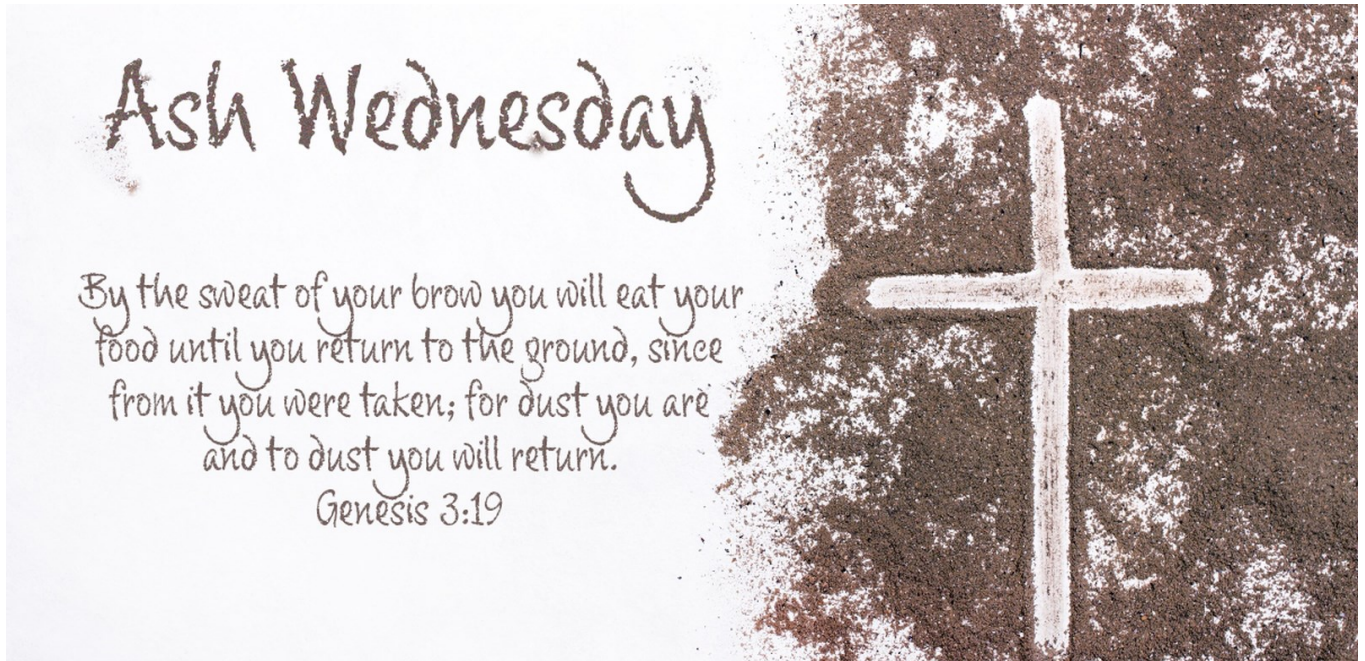 Ash Wednesday
By the sweat of your brow you will eat your
food until you return to the ground, since
from it you were taken; for dust you are
and to dust you will return.
Genesis 3:19